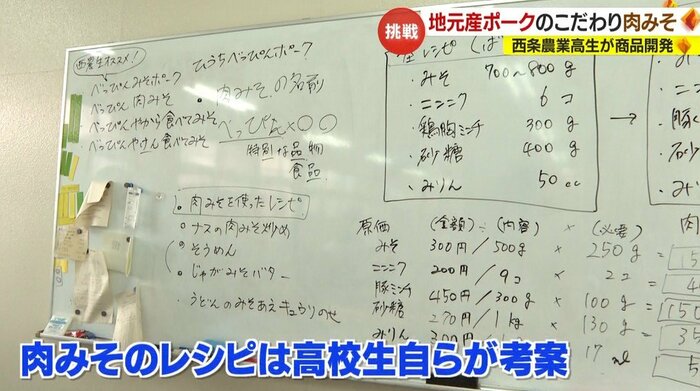 挑戦
地元産ポークのこだわり肉みそ
西条農業高生が商品開発
西農生オススメ!
べっぴんみそポーク
べっぴん肉みそ
べっぴんやから食べてみそ
べっぴんやけん食べてみそ
ひうちべっぴんポーク
・肉みその名前
べっぴん×〇〇
特別な品物
食品
・肉みそを使ったレシピ
・ナスの肉みそ炒め
・そうめん
・じゃがみそバター
・うどんのみそあえキュウリのせ
レシピ
・みそ 700~800g
・ニンニク 6コ
・鶏胸ミンチ 300g
・砂糖 400g
・みりん 50cc
原価 (金額)÷(内容) × (必要)
みそ 300円/500g × 250g
ニンニク 200円/9コ × 2コ
豚ミンチ 450円/300g × 100g
砂糖 270円/1kg × 130g
みりん 300円 17ml
肉みそのレシピは高校生自らが考案